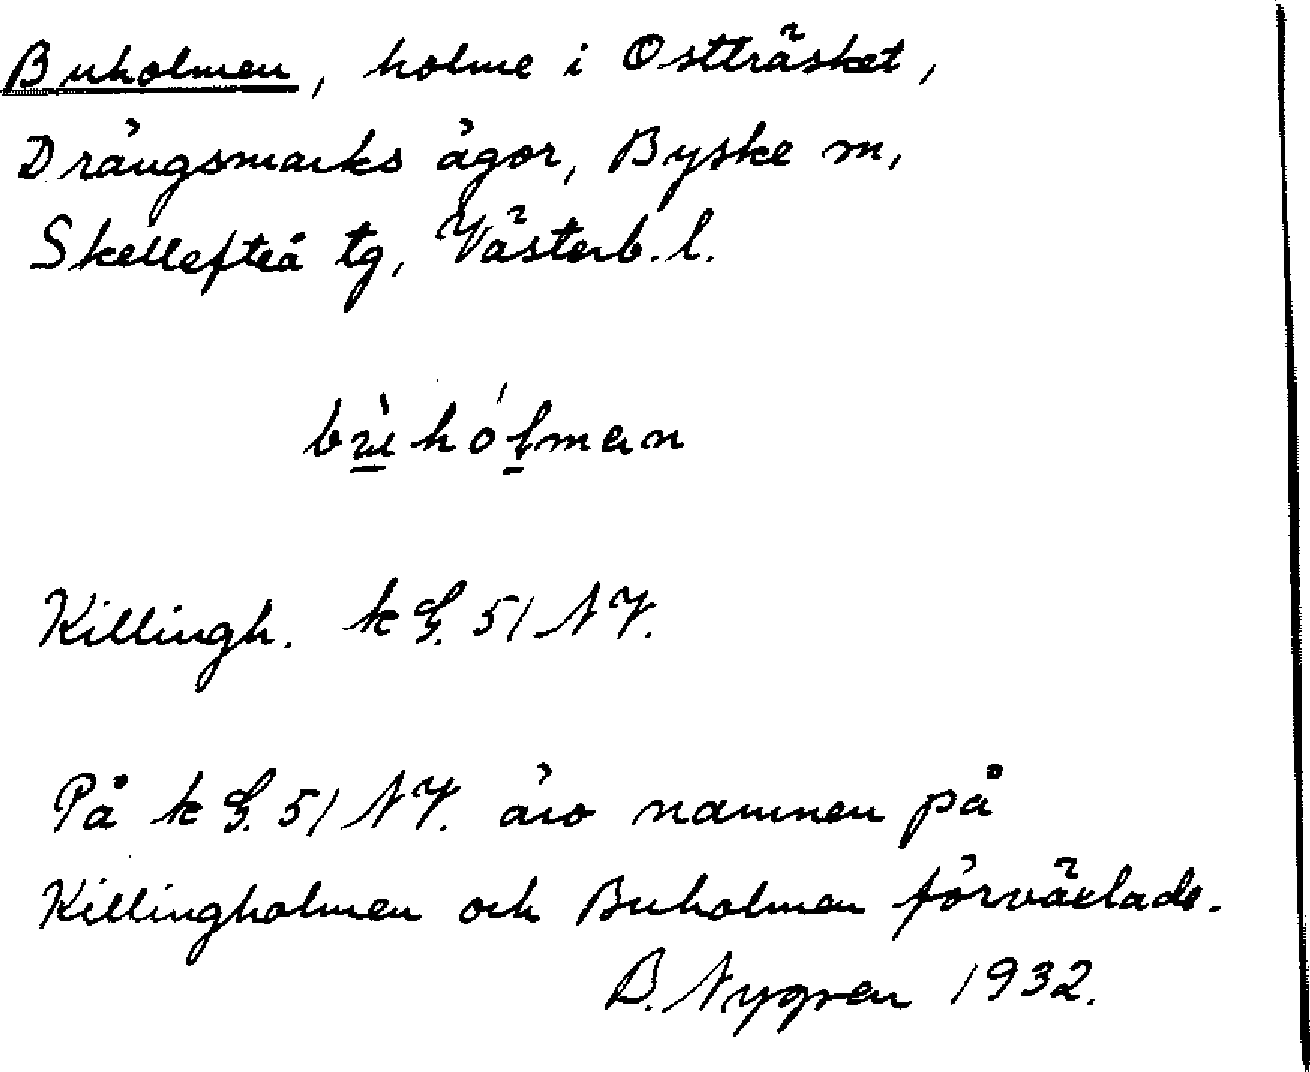 Buholmen, holme i Ostträsket,
Drängsmarks ägor, Byske sn,
Skellefteå tg, Västerb. l.
Killingh. k G. 51 NV.
På k G. 51 NV. äro namnen på
Killingholmen och Buholmen förväxlade.
B. Nygren 1932.